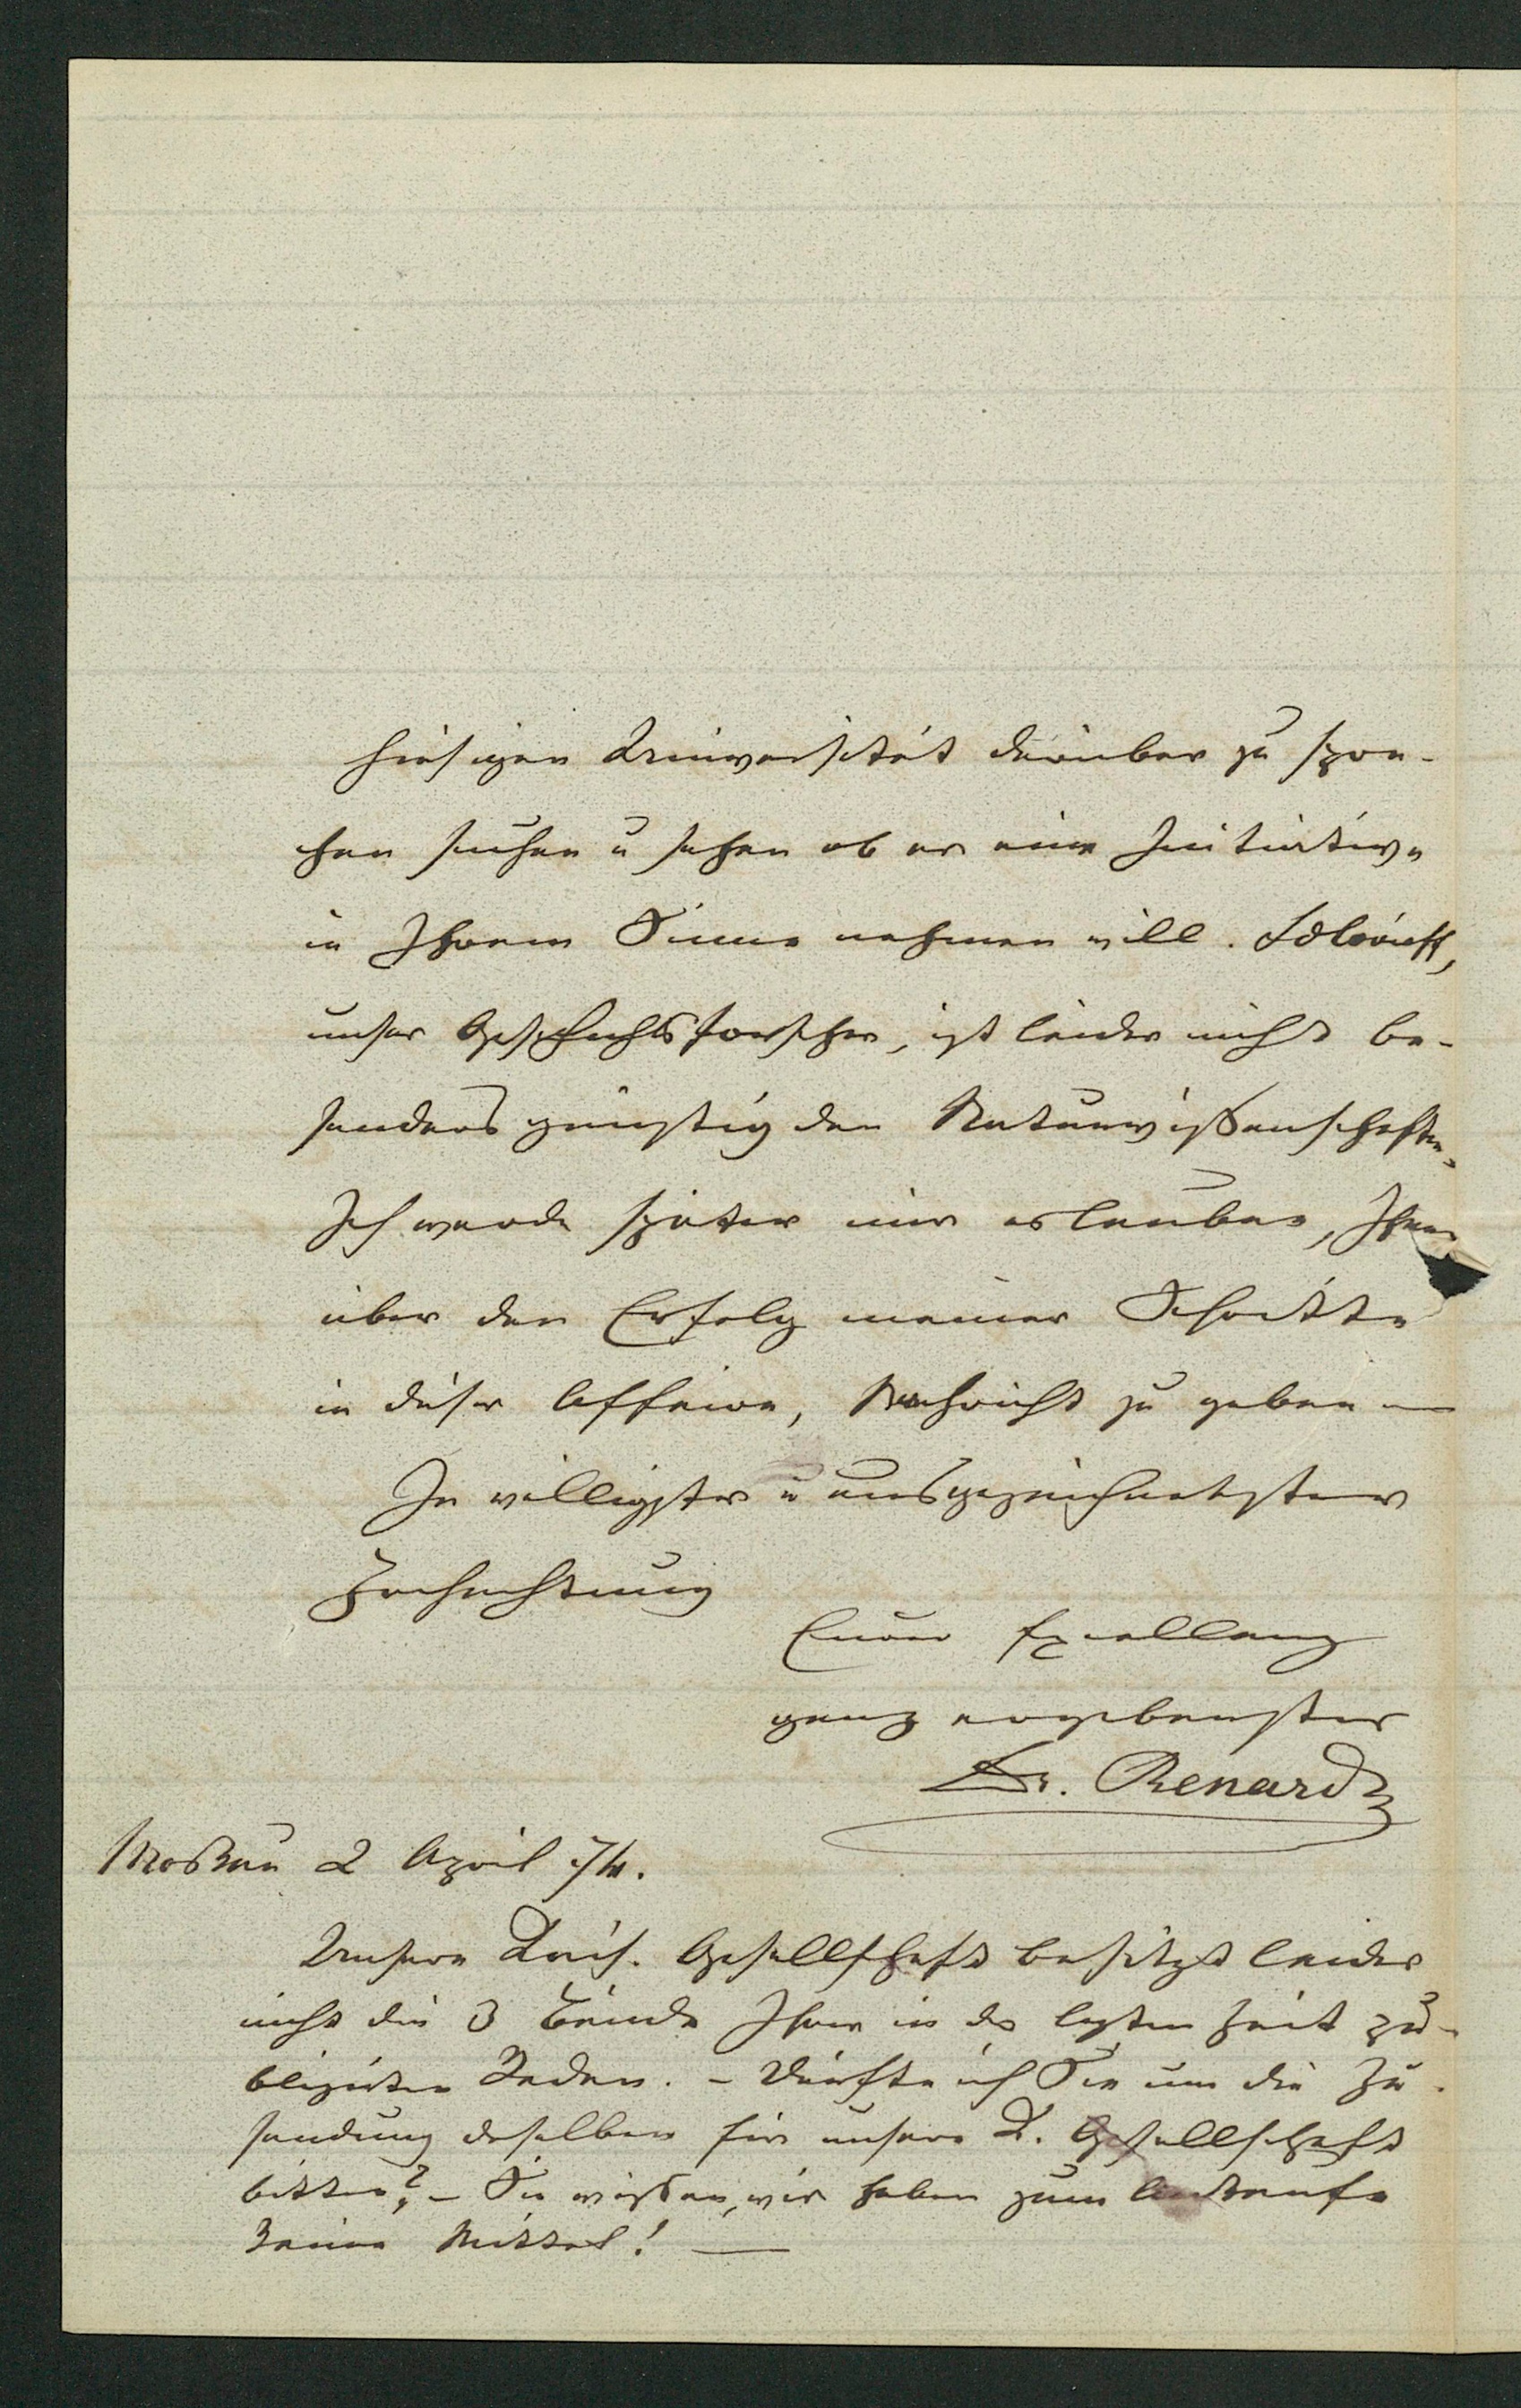 hiesigen Universität darüber zu spre-
chen suchen u sehen ob er eine Initiative
in Ihrem Sinne nehmen will. Solovieff,
unser Geschichtsforscher, ist leider nicht be-
sonders günstig den Naturwißenschaften.
Ich werde später mir erlauben, Ihnen
über den Erfolg meiner Schritte
in dieser Affaire, Nachricht zu geben —
In williger u ausgezeichnetster
Hochachtung
Eurer Excellenz
ganz ergebenster
Dr. Renard
Moskau 2 April 74.
Unsere Kais. Gesellschaft besitzt leider
nicht die 3 Bände Ihrer in der letzten Zeit pu-
blizirten Reden. – Dürfte ich Sie um die Zu-
sendung derselben für unsere K. Gesellschaft
bitten? – Sie wißen, wir haben zum Ankaufe
keine Mittel! —